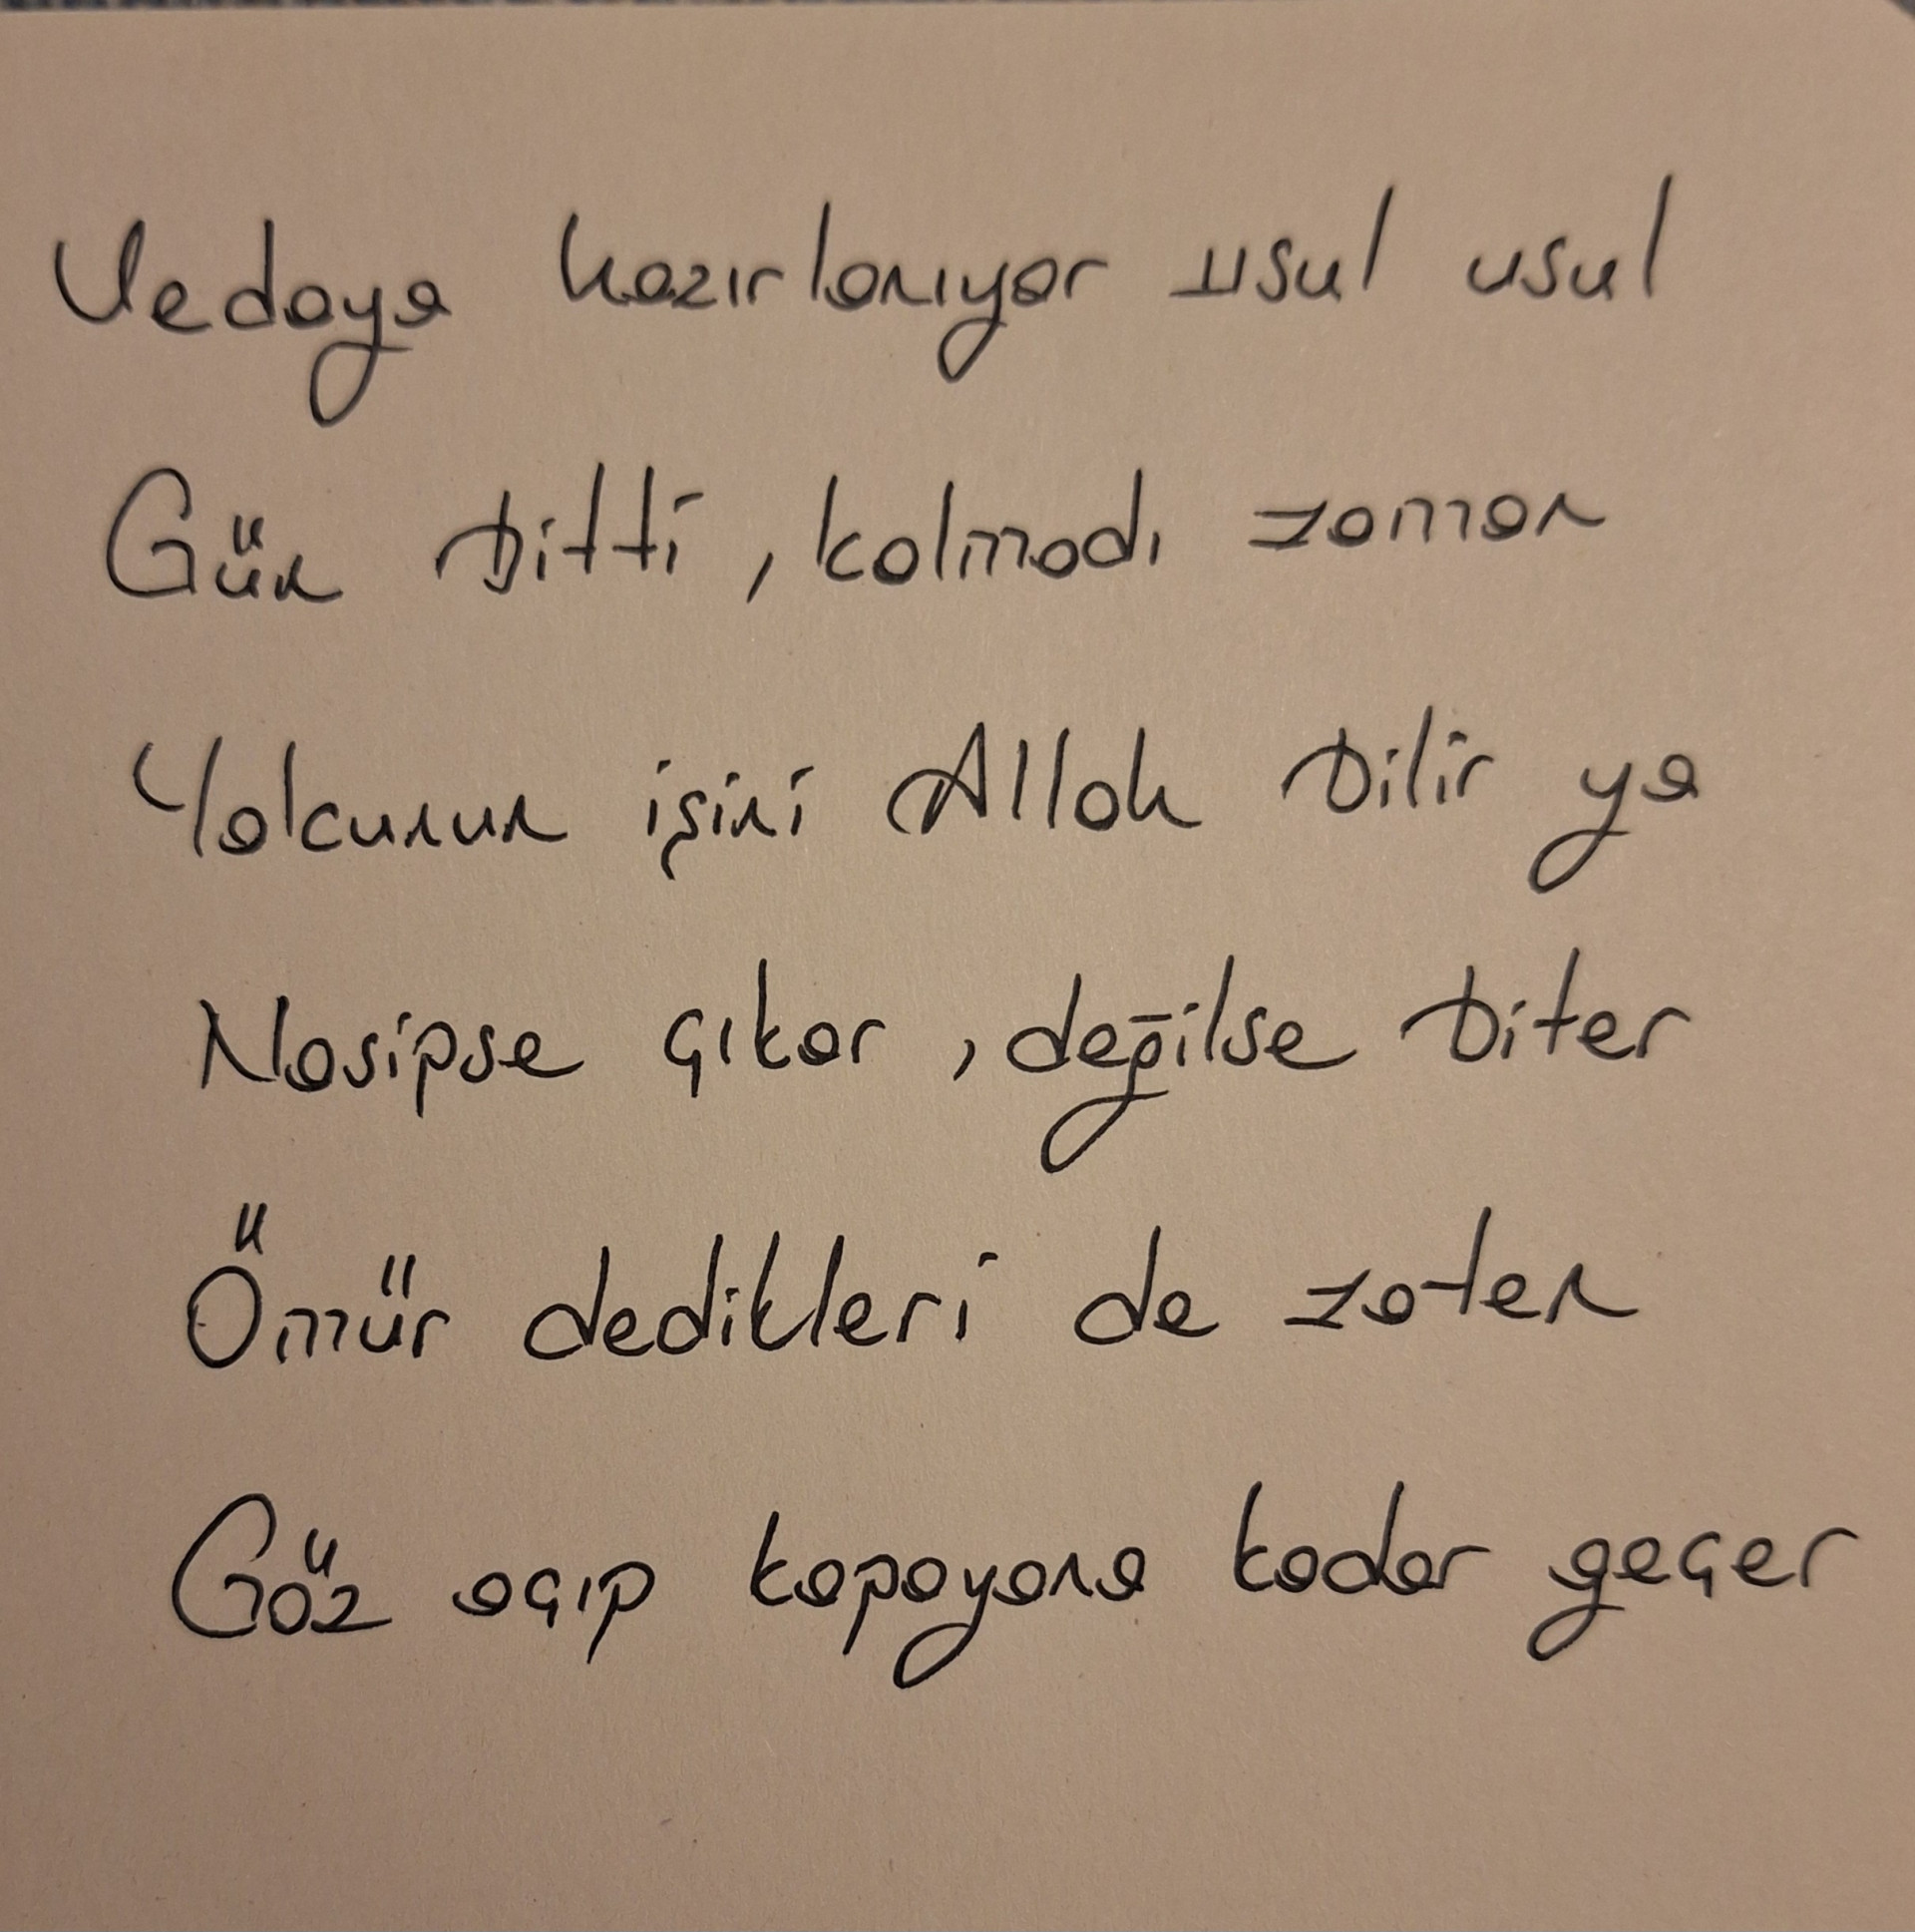 Vedaya hazırlanıyor usul usul
Gün bitti, kalmadı zaman
Yolcunun işini Allah bilir ya
Nasipse çıkar, değilse biter
Ömür dedikleri de zaten
Göz açıp kapayana kadar geçer